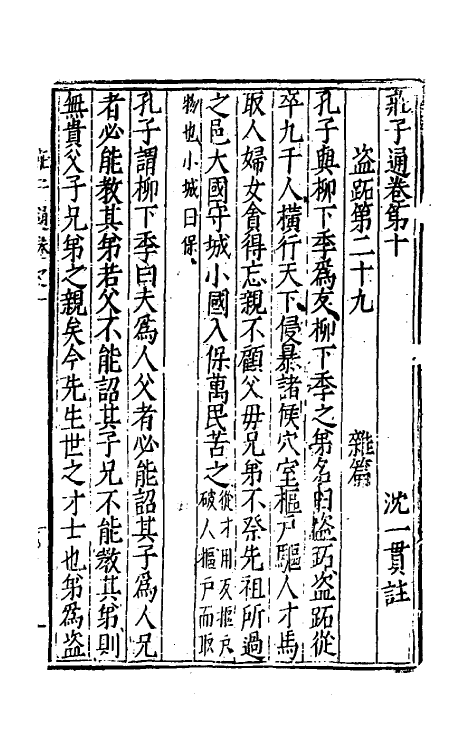 莊子通卷第十
沈一貫註
盜跖第二十九
雜篇
孔子與柳下季為友柳下季之弟名曰盜跖盜跖從
卒九千人橫行天下侵暴諸侯穴室樞戶驅人才馬
取人婦女貪得忘親不顧父毋兄弟不祭先祖所過
之邑大國守城小國入保萬民苦之
破人樞戶而取
物也小城曰保
孔子謂柳下季曰夫為人父者必能詔其子為人兄
者必能教其弟若父不能詔其子兄不能教其弟則
無貴父子兄弟之親矣今先生世之才士也弟為盜